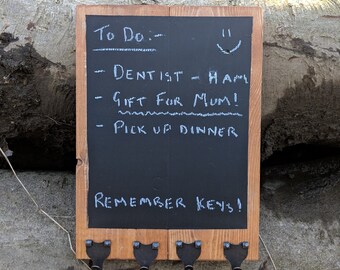 To Do:-
- DENTIST - HAM
- GIFT FOR MUM!
- PICK UP DINNER
REMEMBER KEYS!